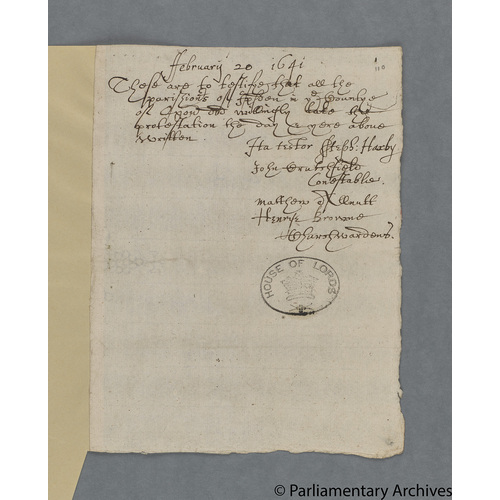 February 20 1641
110
These are to testifie that all the
parishioners of in ye Countye
of did willingly take the
protestation the day & yere above
written.
Ita testor Steph: Harby
John Crutchfield
Constable.
Matthew
Henrye Browne
Churchwardens.
HOUSE OF LORDS
© Parliamentary Archives